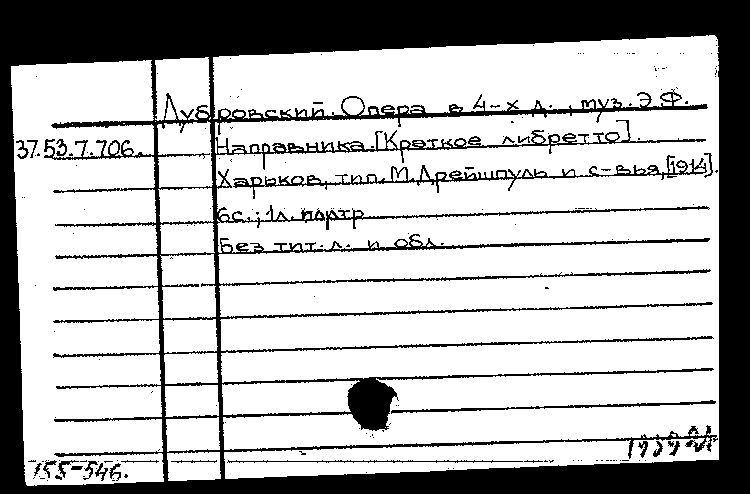 Дубровский. Опера в 4-х д., муз. Э.Ф.
37.53.7.706. Направника. [Краткое либретто].
Харьков, тип. М. Дрейшпуль и с-вья, [1914].
6с.; 1л. портр
Без тит. л. и обл.
155-546.